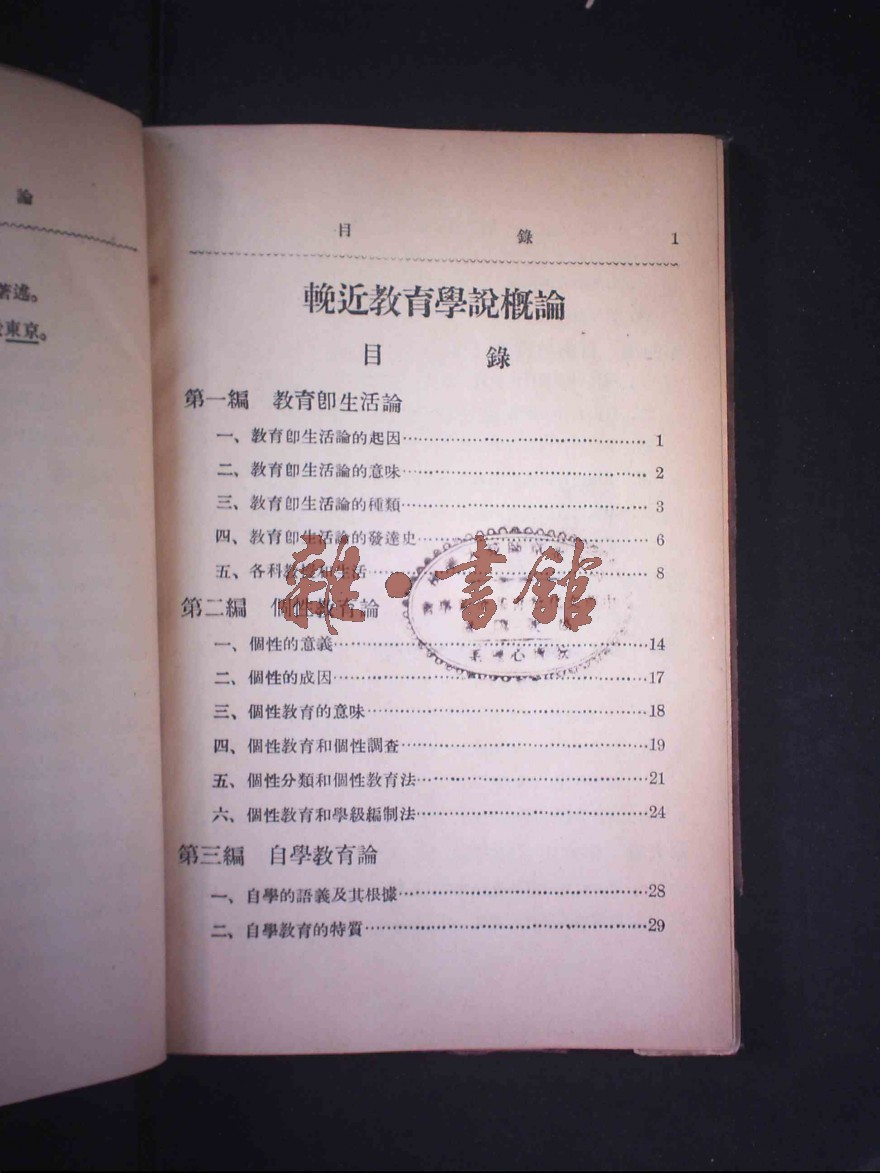 論
著述。
東京。
目 錄 1
輓近教育學說概論
目 錄
第一編 教育卽生活論
一、教育卽生活論的起因 1
二、教育卽生活論的意味 2
三、教育卽生活論的種類 3
四、教育卽生活論的發達史 6
五、各科教 和生活 8
雜·書館
第二編 個性教育論
一、個性的意義 14
二、個性的成因 17
三、個性教育的意味 18
四、個性教育和個性調查 19
五、個性分類和個性教育法 21
六、個性教育和學級編制法 24
第三編 自學教育論
一、自學的語義及其根據 28
二、自學教育的特質 29